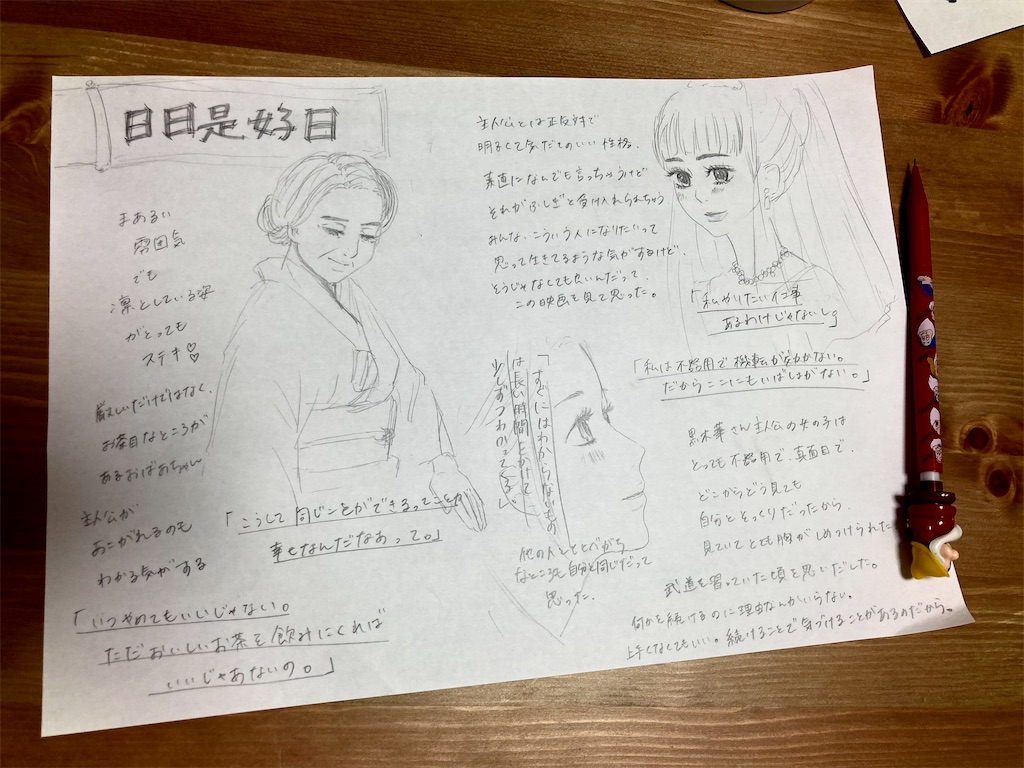 日日是好日
まあるい
雰囲気
でも
凛としている姿
がとっても
ステキ♡♡
厳しいだけではなく、
お茶目なところが
あるおばあちゃん
主人公が
あこがれるのも
わかる気がする
「こうして同じことができるってことが
幸せなんだなあって。」
「いつやめてもいいじゃない。
ただおいしいお茶を飲みにくれば
いいじゃあないの。」
主人公とは正反対で
明るくて気だてのいい性格。
素直になんでも言っちゃうけど
それがふしぎと受け入れられちゃう
みんな、こういう人になりたいって
思って生きてるような気がするけど、
そうじゃなくてもいいんだって、
この映画を見て思った。
「私やりたい仕事
あるわけじゃないし」
「すぐにはわからないもの
は長い時間をかけて、
少しずつわかってくる」
他の人とくらべがち
なところも自分と同じだって
思った。
「私は不器用で機転が効かない。
だからここにもいばしょがない。」
黒木華さん主人公の女の子は
とっても不器用で、真面目で、
どこからどう見ても
自分とそっくりだったから、
見ていてとても胸がしめつけられた
武道を習っていた頃を思いだした。
何かを続けるのに理由なんかいらない。
上手くなくてもいい。続けることで気づけることがあるのだから。